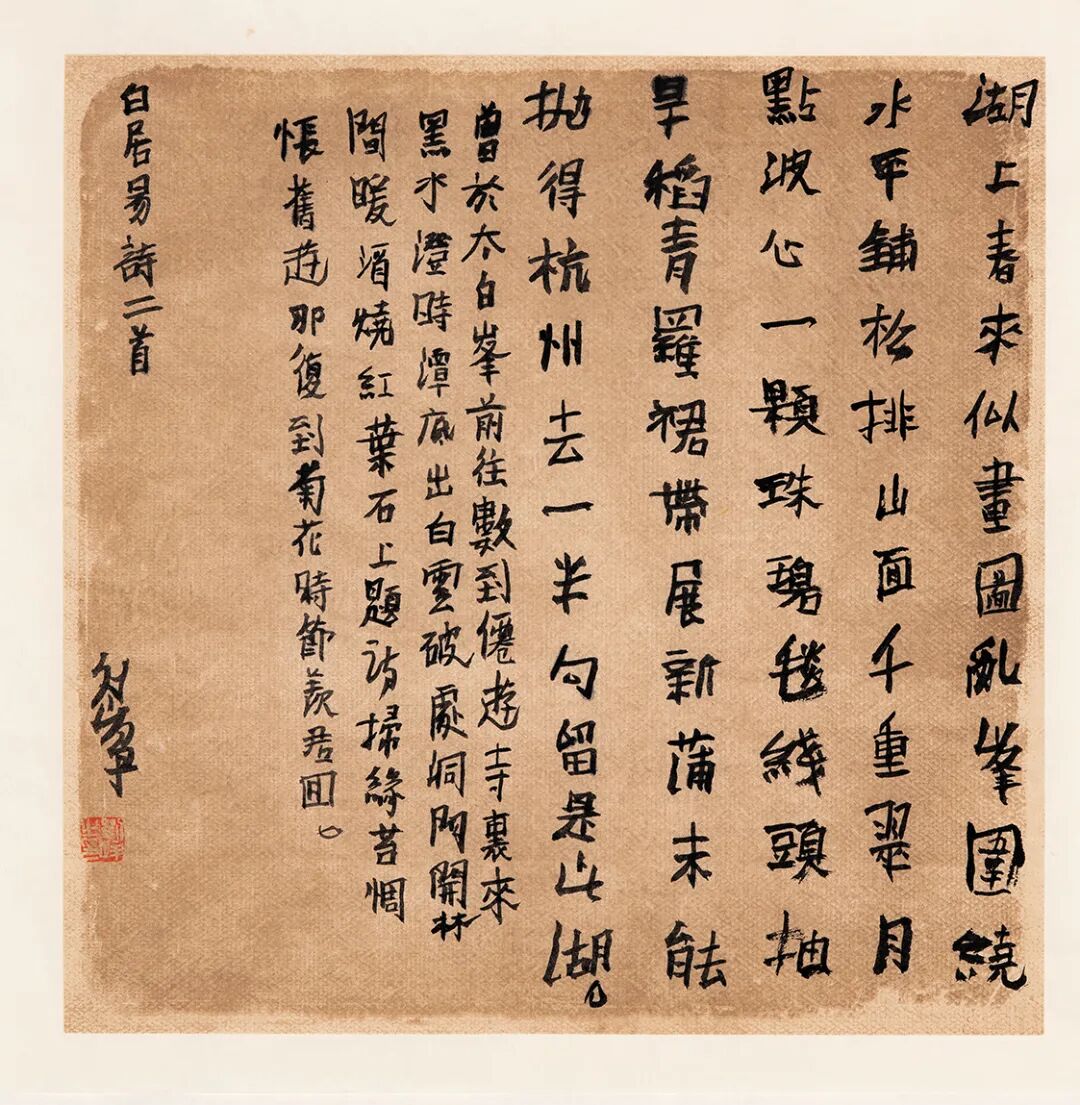 湖上春來似畫圖亂峯圍繞
水平鋪松排山面千重翠月
點波心一顆珠碧毯綫頭抽
早稻青羅裙帶展新蒲未能
拋得杭州去一半勾留是此湖。
曾於太白峯前往數到僊遊寺裏來
黑水澄時潭底出白雲破處洞門開林
間暖酒燒紅葉石上題詩掃綠苔惆
悵舊遊那復到菊花時節羨君回。
白居易詩二首